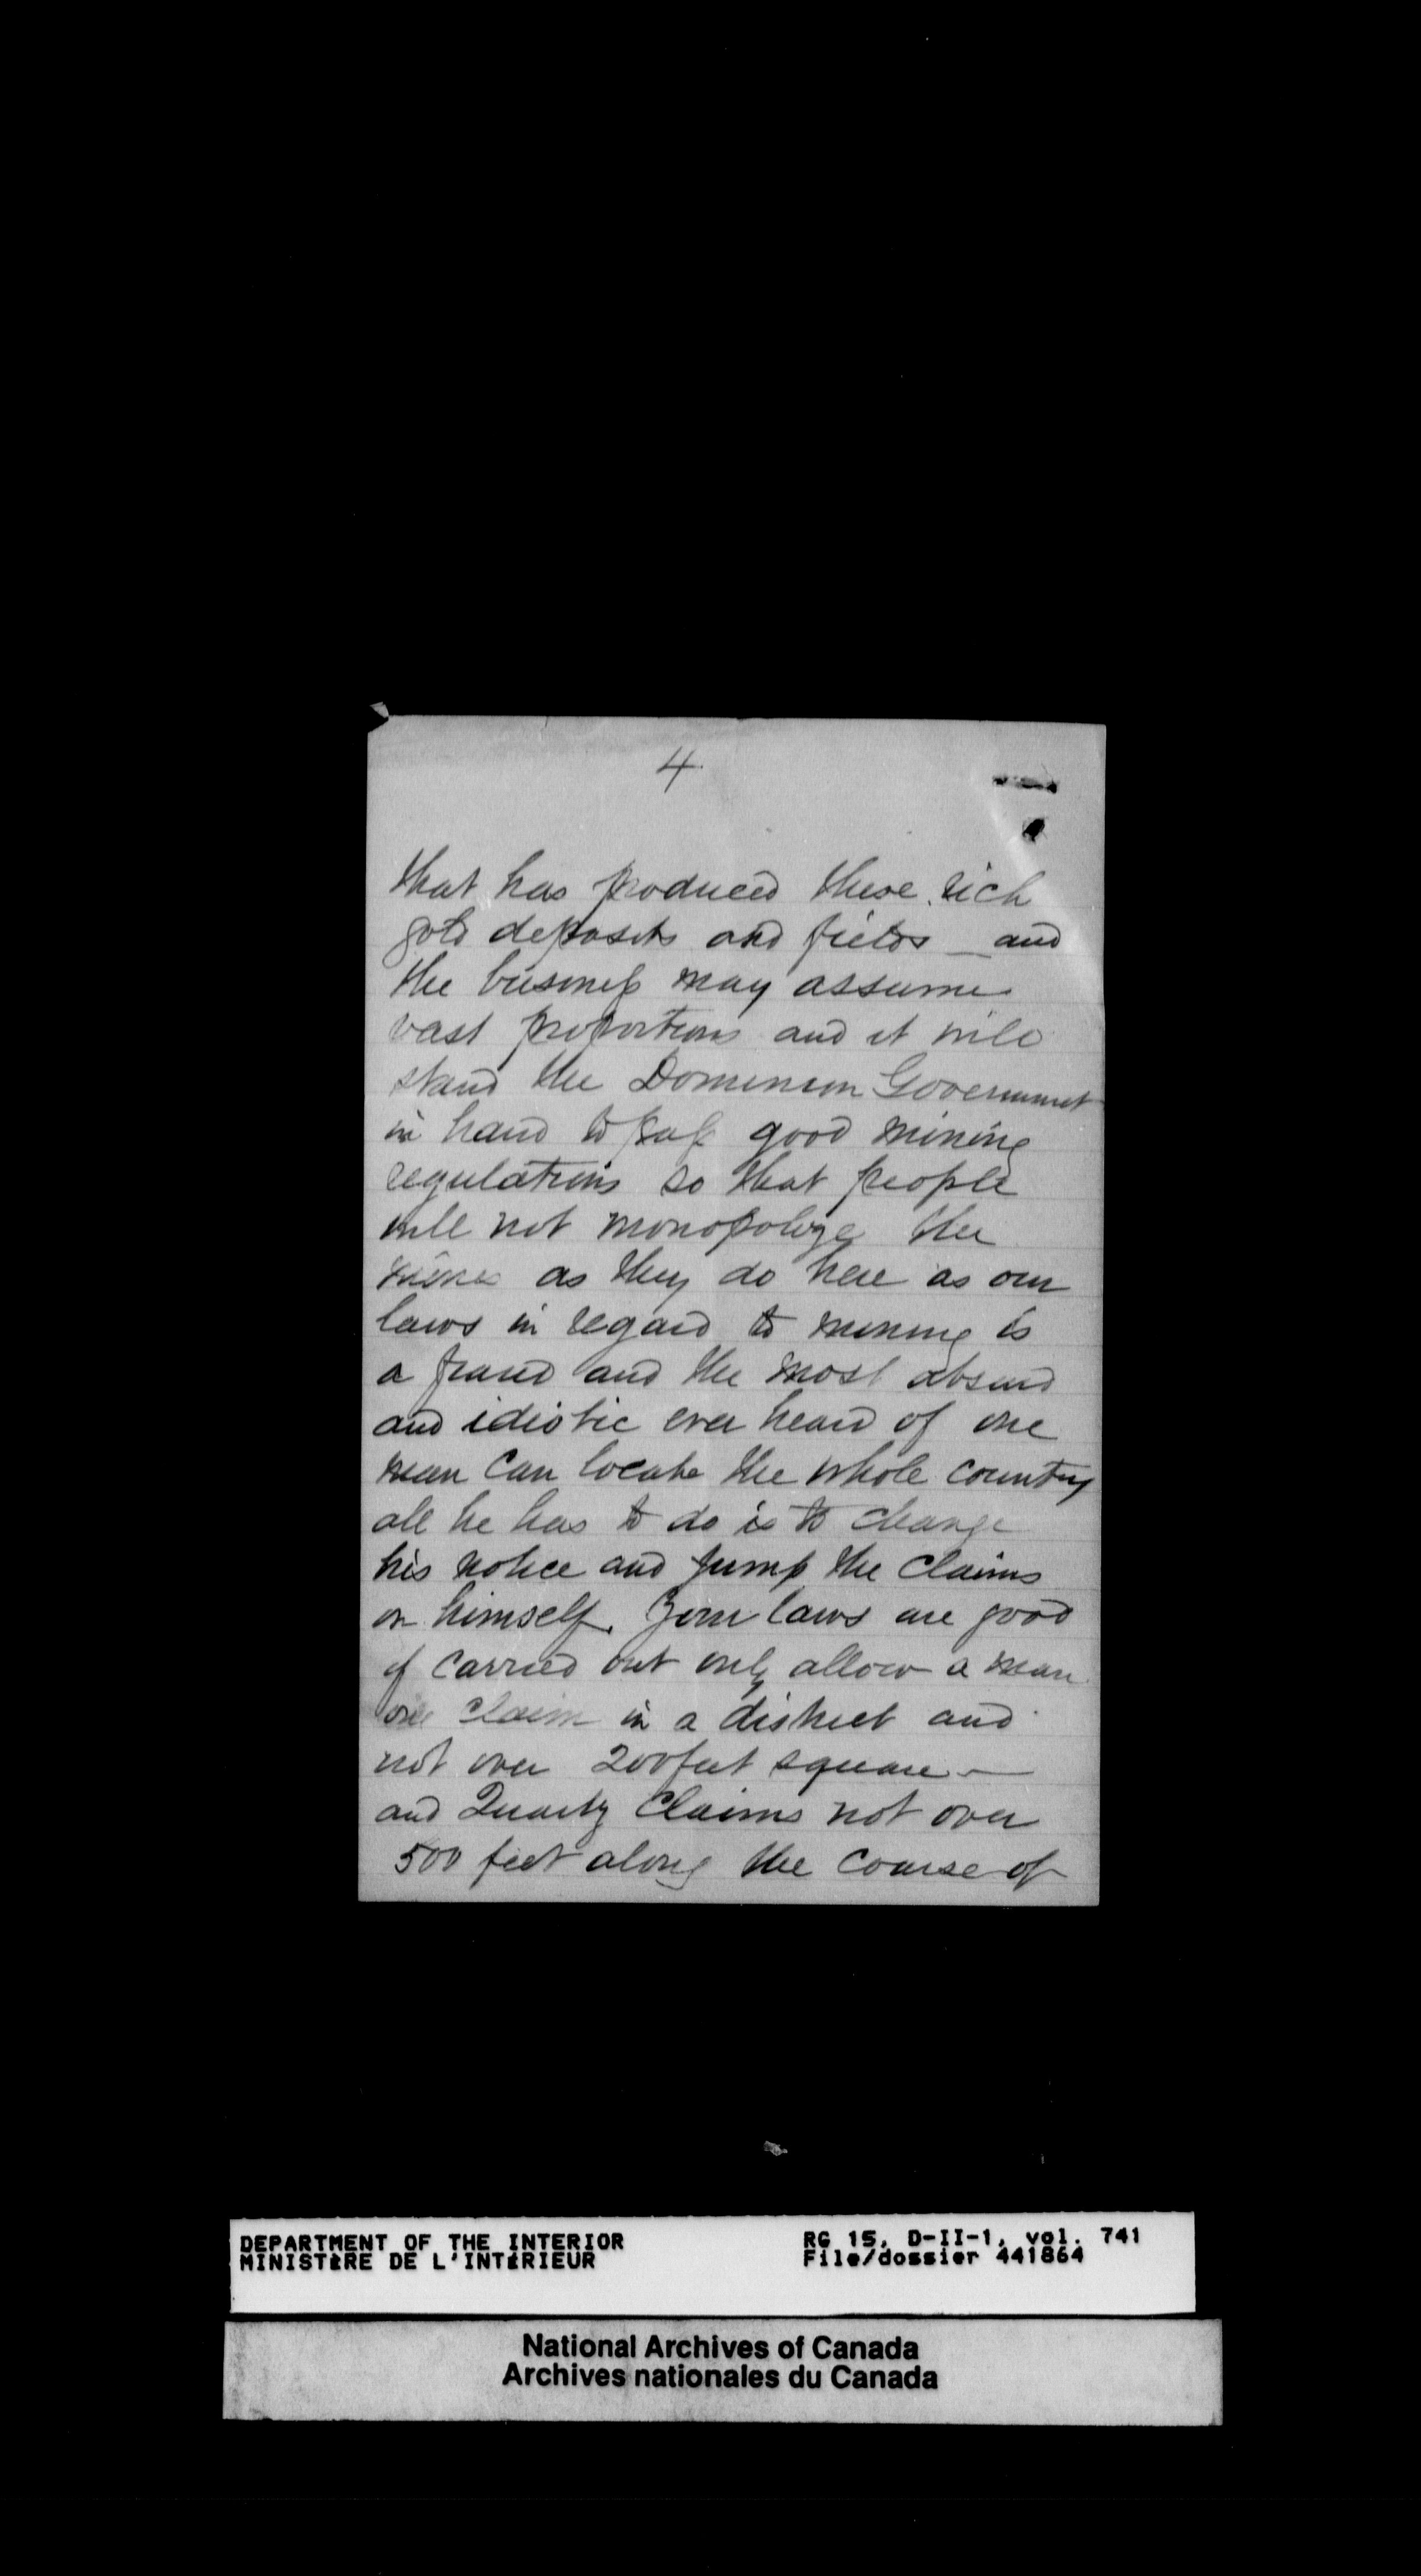 4
that has produced these rich
gold deposits and fields — and
the business may assume
vast proportions and it will
stand the Dominion Government
in hand to pass good mining
regulations so that people
will not monopolize the
mines as they do here as our
laws in regard to mining is
a fraud and the most absurd
and idiotic ever heard of one
man can locate the whole country
all he has to do is to change
his notice and jump the claims
on himself. Your laws are good
if carried out only allow a man
one claim in a district and
not over 200 feet square —
and Quartz Claims not over
500 feet along the course of
DEPARTMENT OF THE INTERIOR
MINISTÈRE DE L'INTÉRIEUR
RG 15, D-II-1, vol. 741
File/dossier 441864
National Archives of Canada
Archives nationales du Canada